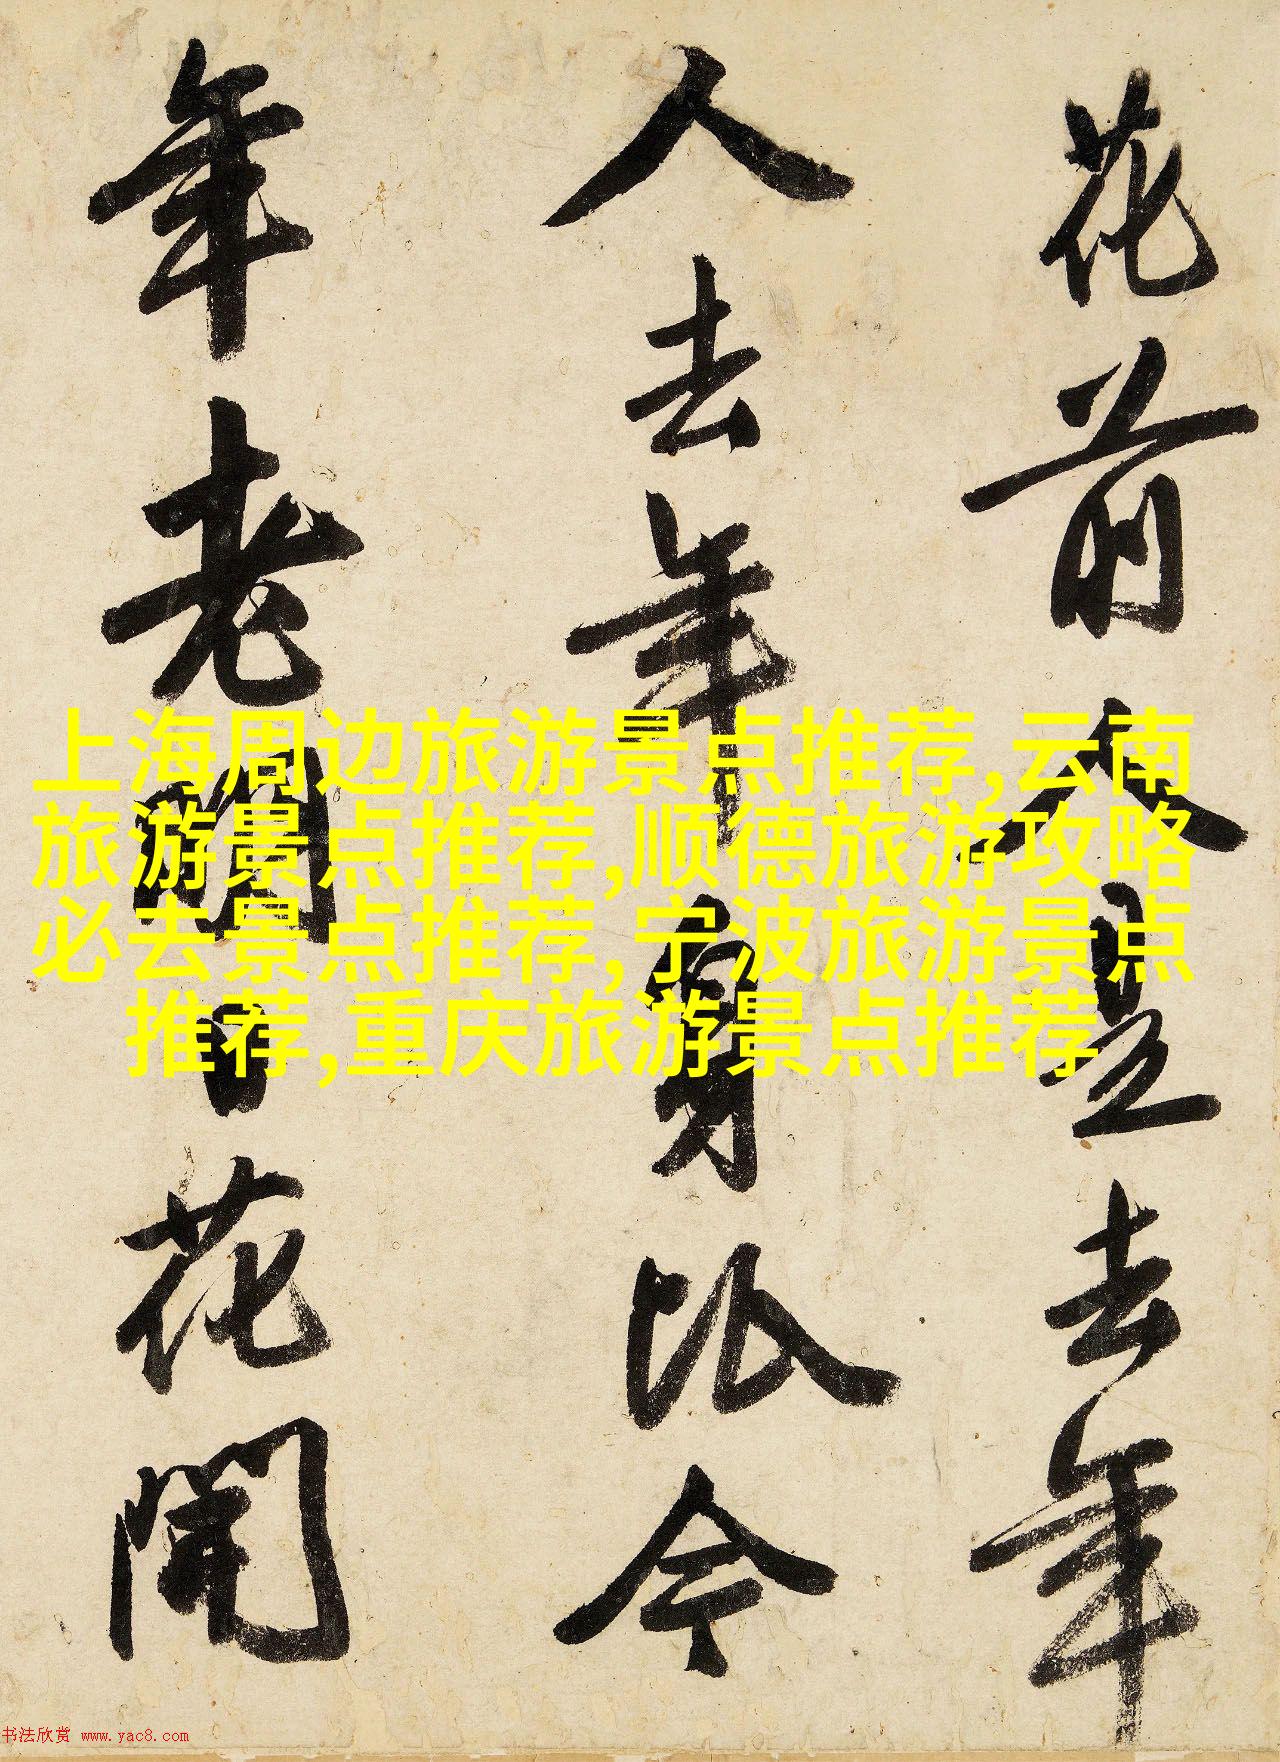 花前人是去年
人去年身比今
年老明日花開
上海周边旅游景点推荐,云南
旅游景点推荐,顺德旅游攻略
必去景点推荐,宁波旅游景点
推荐,重庆旅游景点推荐
书法欣赏 www.yac8.com